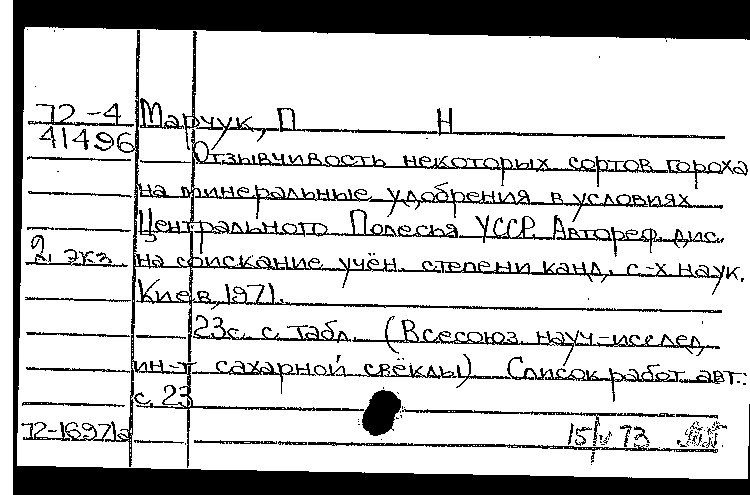 72-4 Марчук, П Н
41496 Отзывчивость некоторых сортов гороха
на минеральные удобрения в условиях
Центрального Полесья УССР. Автореф. дис.
2 экз на соискание учён. степени канд. с.-х наук.
Киев, 1971.
23с. с. табл. (Всесоюз. науч-исслед.
ин-т сахарной свёклы) Список работ авт.:
с. 23
72-16971а 15/V 73